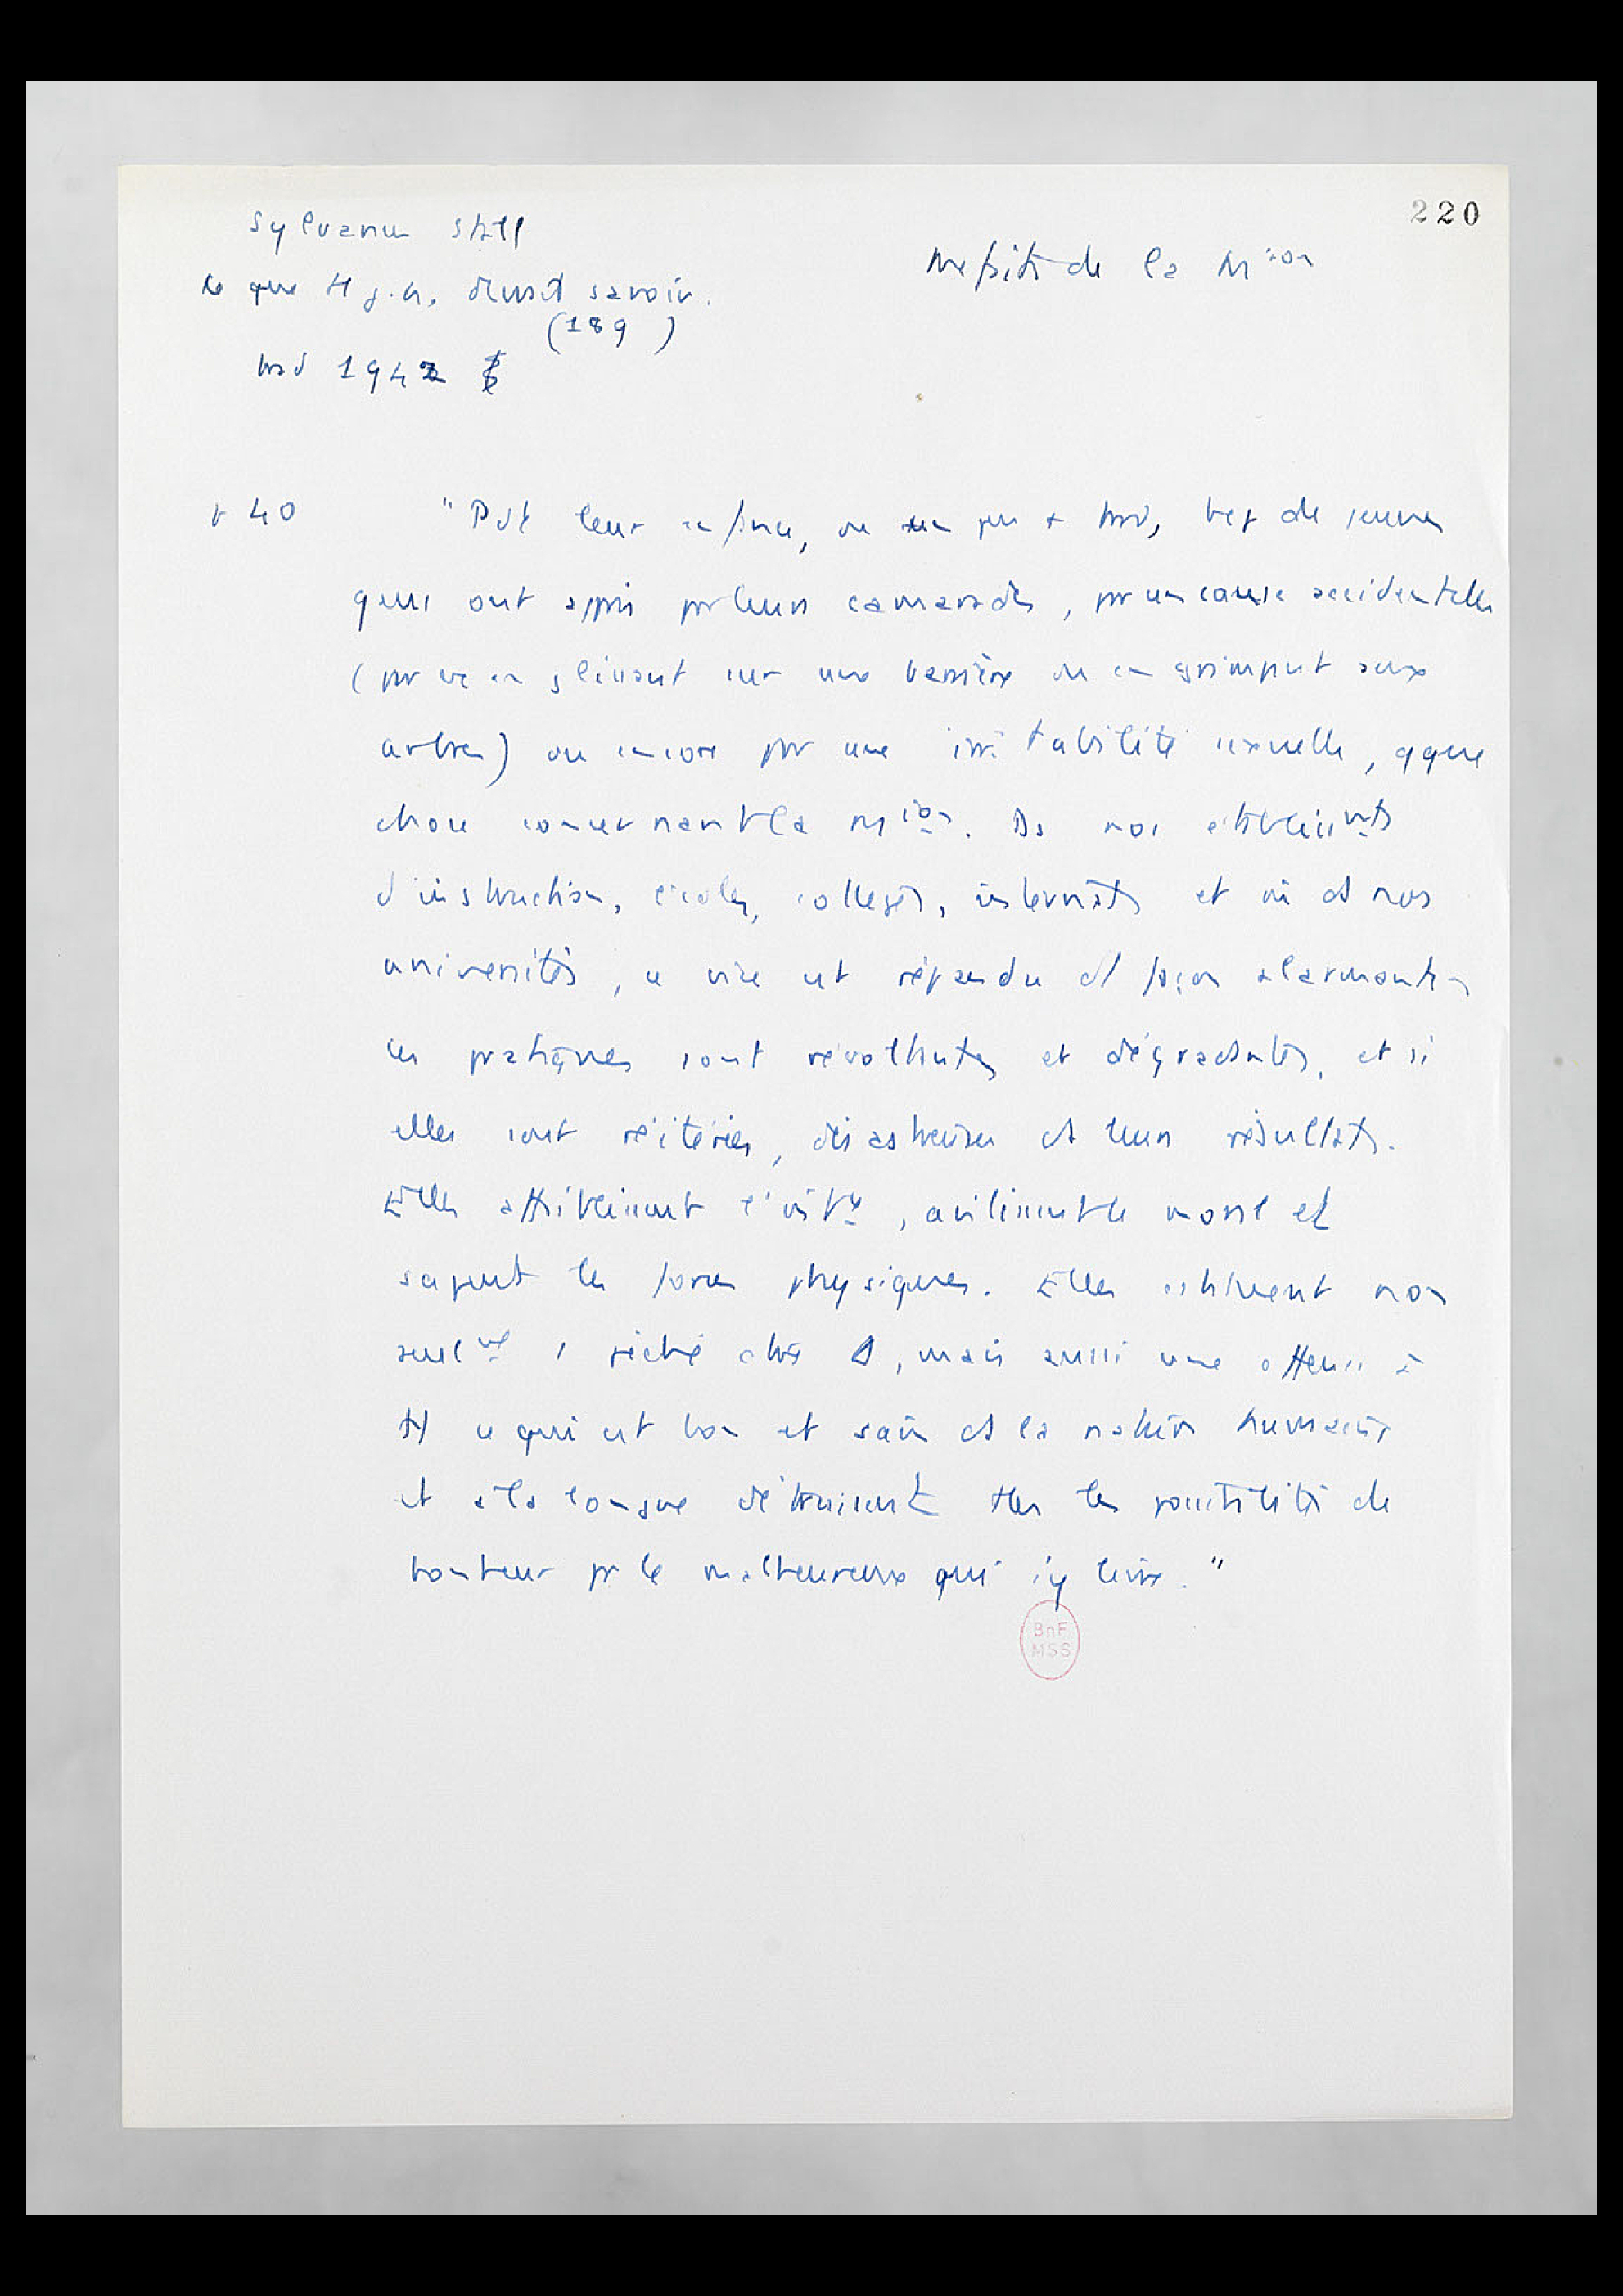 220
Sylvanus Stall
Méfaits de la Mion
Ce que tt j.h. devrait savoir.
(189 )
trad 1942
p 40 "Pdt leur enfance, ou un peu + tard, bcp de jeunes
gens ont appris par leurs camarades, par une cause accidentelle
(par ex en glissant sur une barrière ou en grimpant aux
arbres) ou encore par une irritabilité sexuelle, qque
chose concernant la Mion. Ds nos établissmts
d'instruction, écoles, collèges, internats et ds nos
universités, ce vice est répandu d façon alarmante
ces pratiques sont révoltantes et dégradantes, et si
elles sont réitérées, désastreuses ds leurs résultats.
Elles affaiblissent l' , avilissent le moral et
sapent les forces physiques. Elles constituent non
seulmt 1 péché , mais aussi une offense à
tt ce qui est bon et sain ds la nature humaine
et à la longue détruisent ttes les possibilités de
bonheur pr le malheureux qui s'y livre."
BnF
MSS